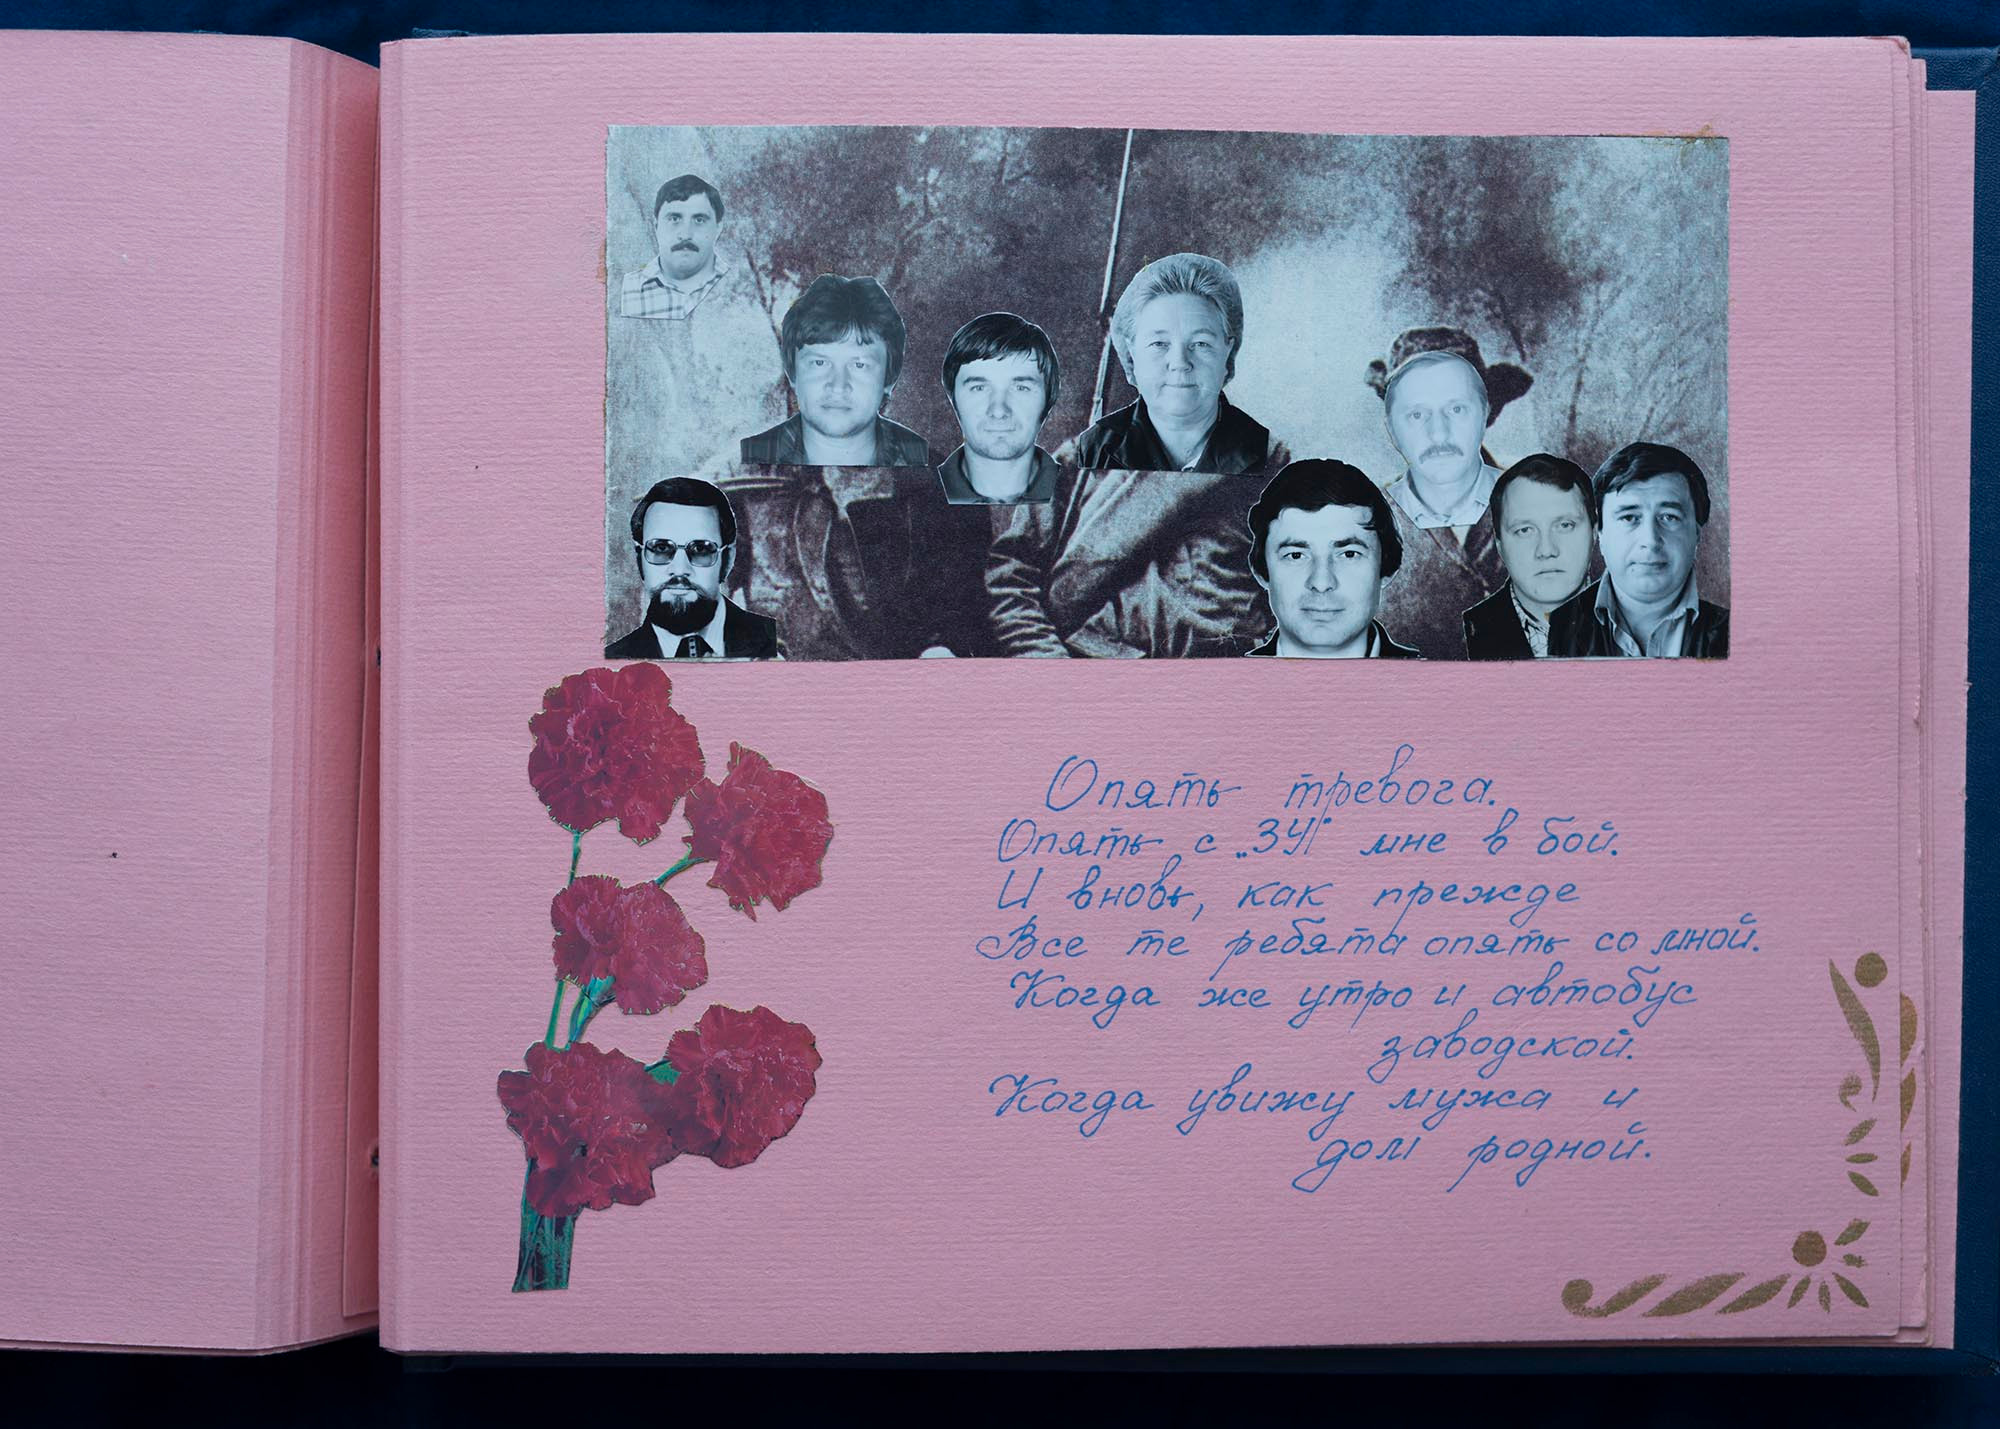 Опять тревога.
Опять с „ЗУ" мне в бой.
И вновь, как прежде
Все те ребята опять со мной.
Когда же утро и автобус
заводской.
Когда увижу мужа и
дом родной.